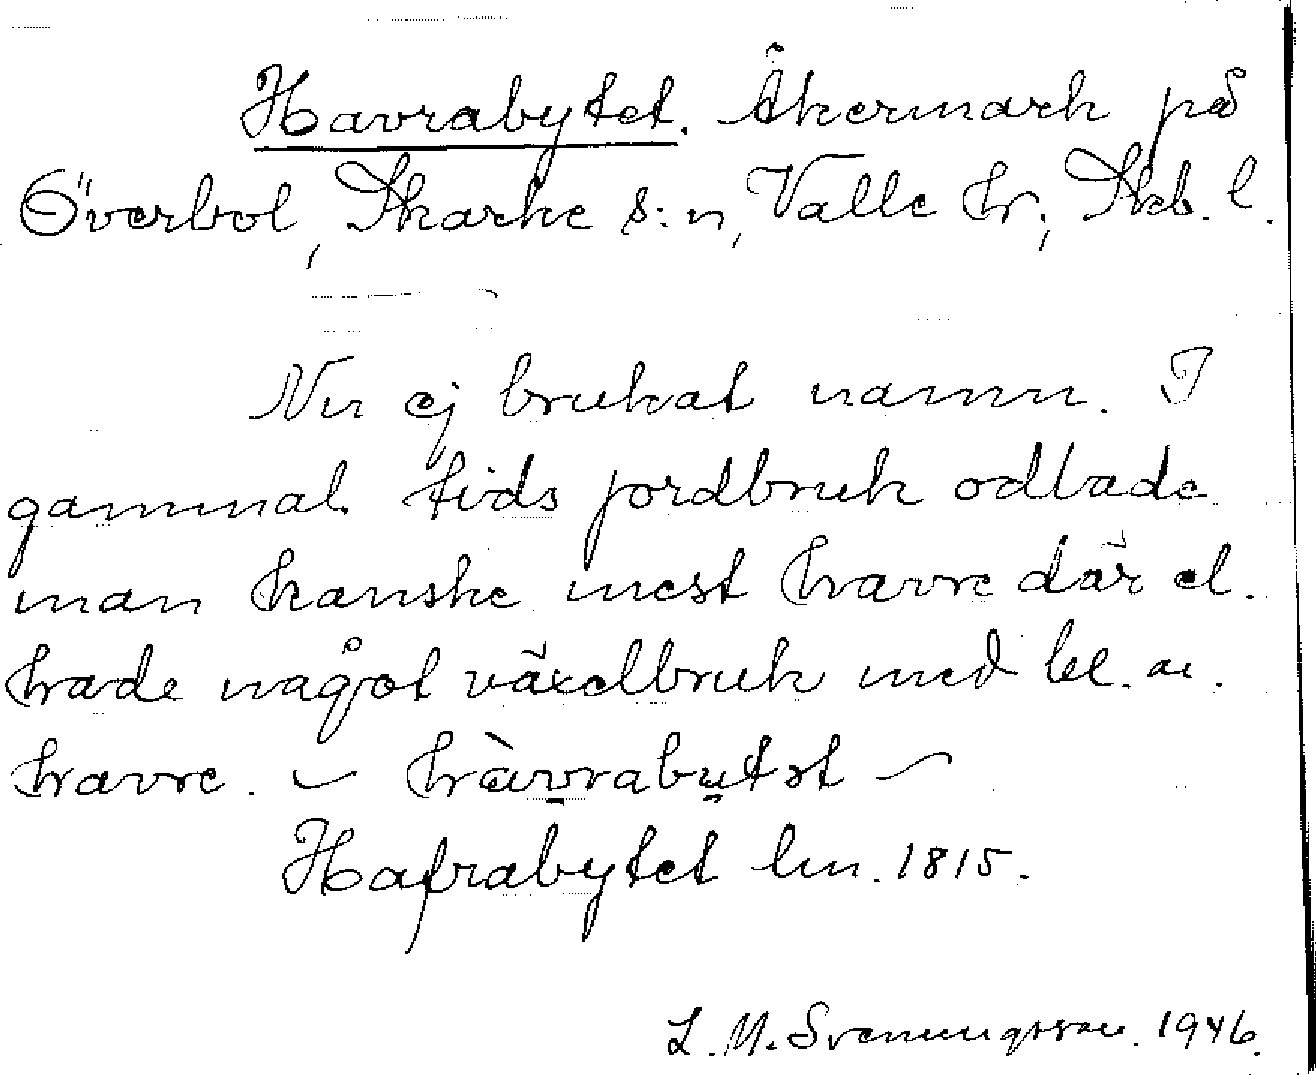 Havrabytet. Åkermark på
Överbol, Skarke s:n, Valle hr, Skb. l.
Nu ej brukat namn. I
gammal tids jordbruk odlade
man kanske mest havre där el.
hade något växelbruk med bl. a.
havre. – hàvrabutət –
Hafrabytet lm. 1815.
L. M. Svenungsson. 1946.